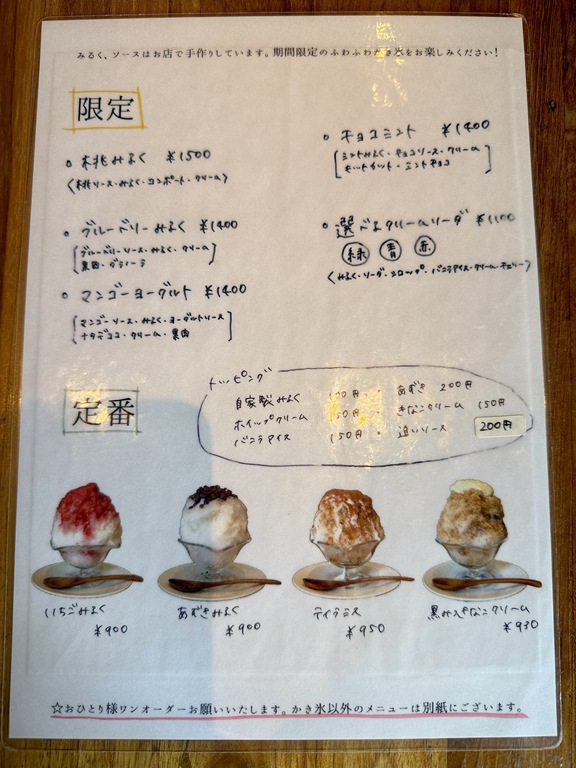 みるく、ソースはお店で手作りしています。期間限定のふわふわかき氷をお楽しみください!
限定
桃みるく ¥1500
〈桃ソース・みるく・コンポート・クリーム〉
ブルーベリーみるく ¥1400
[ブルーベリーソース・みるく・クリーム
果肉・グラノーラ]
マンゴーヨーグルト ¥1400
[マンゴーソース・みるく・ヨーグルトソース
ナタデココ・クリーム・果肉]
チョコミント ¥1400
[ミントみるく・チョコソース・クリーム
キットカット・ミントチョコ]
選べるクリームソーダ ¥1100
緑 青 赤
〈みるく・ソーダ・シロップ・バニラアイス・クリーム・チェリー〉
定番
トッピング
自家製みるく 100円 ・ あずき 200円
ホイップクリーム 150円 ・ きなこクリーム 150円
バニラアイス 150円 ・ 追いソース 200円
いちごみるく ¥900
あずきみるく ¥900
ティラミス ¥950
黒みつきなこクリーム ¥930
☆おひとり様ワンオーダーお願いいたします。かき氷以外のメニューは別紙にございます。